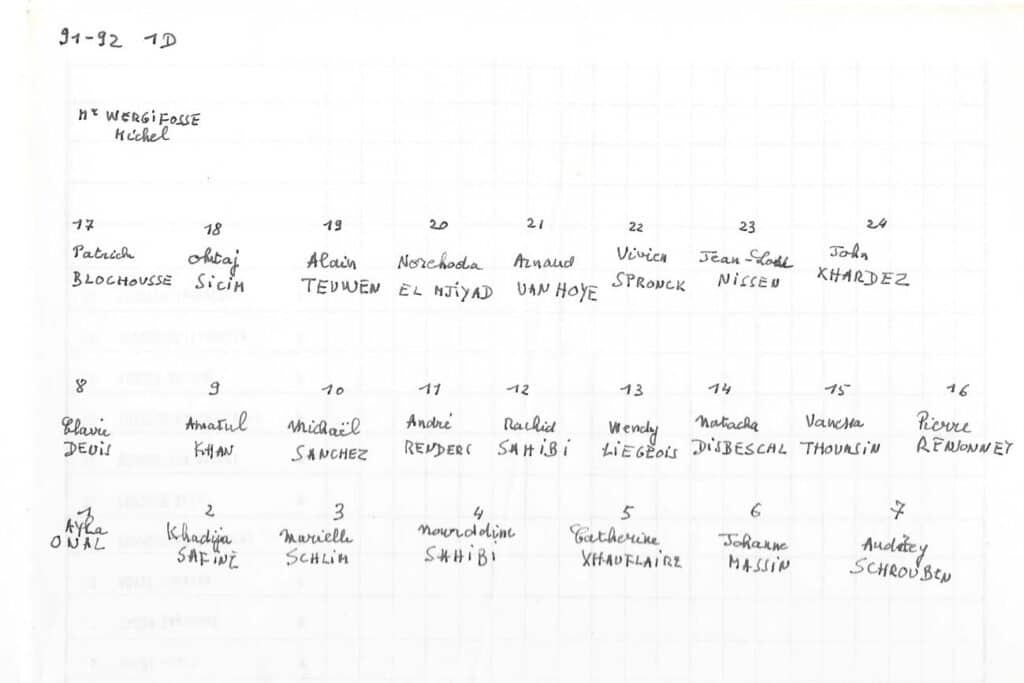 91-92 1D
Mr WERGIFOSSE
Michel
17 18 19 20 21 22 23 24
Patrick Oktaj Alain Norehoda Arnaud Vivien Jean John
BLOCHOUSSE SICIM TEUWEN EL MJIYAD VAN HOYE SPRONCK NISSEN XHARDEZ
8 9 10 11 12 13 14 15 16
Amatul Michaël André Rachid Wendy Natacha Vanessa Pierre
DEVIS KHAN SANCHEZ RENDERS SAHIBI LIEGEOIS DISBESCAL THOUNSIN RENONNET
1 2 3 4 5 6 7
Khadija Marielle Nourddine Catherine Johanne Audrey
ONAL SAFINE SCHLIM SAHIBI XHAUFLAIRE MASSIN SCHROUBEN